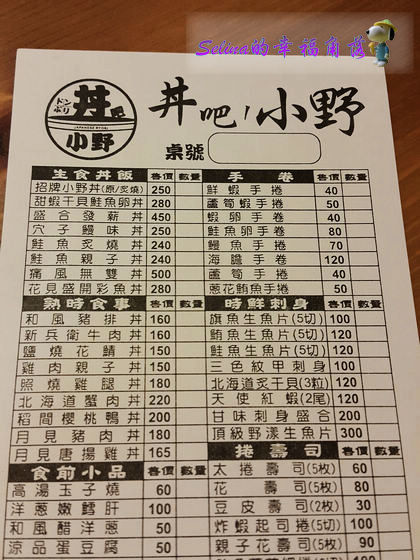 Selina的幸福角落
ドンぶり
丼吧
JAPANESE DONBURI
小野
丼吧!小野
桌號
生食丼飯 售價 數量
招牌小野丼(原/炙燒) 250
甜蝦干貝鮭魚卵丼 280
盛合發薪丼 450
穴子鰻味丼 250
鮭魚炙燒丼 240
鮭魚親子丼 240
痛風無雙丼 500
花見盛開彩魚丼 280
熟時食事 售價 數量
和風豬排丼 160
新兵衛牛肉丼 160
鹽燒花鯖丼 150
雞肉親子丼 150
照燒雞腿丼 180
北海道蟹肉丼 220
稻間櫻桃鴨丼 200
月見豬肉丼 180
月見唐揚雞丼 165
食前小品 售價 數量
高湯玉子燒 60
洋蔥嫩鱈肝 100
和風醋洋蔥 50
涼品蛋豆腐 50
手卷 售價 數量
鮮蝦手捲 40
蘆筍蝦手捲 50
蝦卵手捲 40
鮭魚卵手捲 80
鰻魚手捲 70
海膽手捲 120
蘆筍手捲 40
蔥花鮪魚手捲 50
時鮮刺身 售價 數量
旗魚生魚片(5切) 100
鮪魚生魚片(5切) 120
鮭魚生魚片(5切) 120
三色紋甲刺身 100
北海道炙干貝(3粒) 120
天使紅蝦(2尾) 120
甘味刺身盛合 200
頂級野漾生魚片 300
捲壽司 售價 數量
太捲壽司(5枚) 60
花壽司(5枚) 80
豆皮壽司(2枚) 30
炸蝦起司捲(5切) 100
親子花壽司(5枚) 90